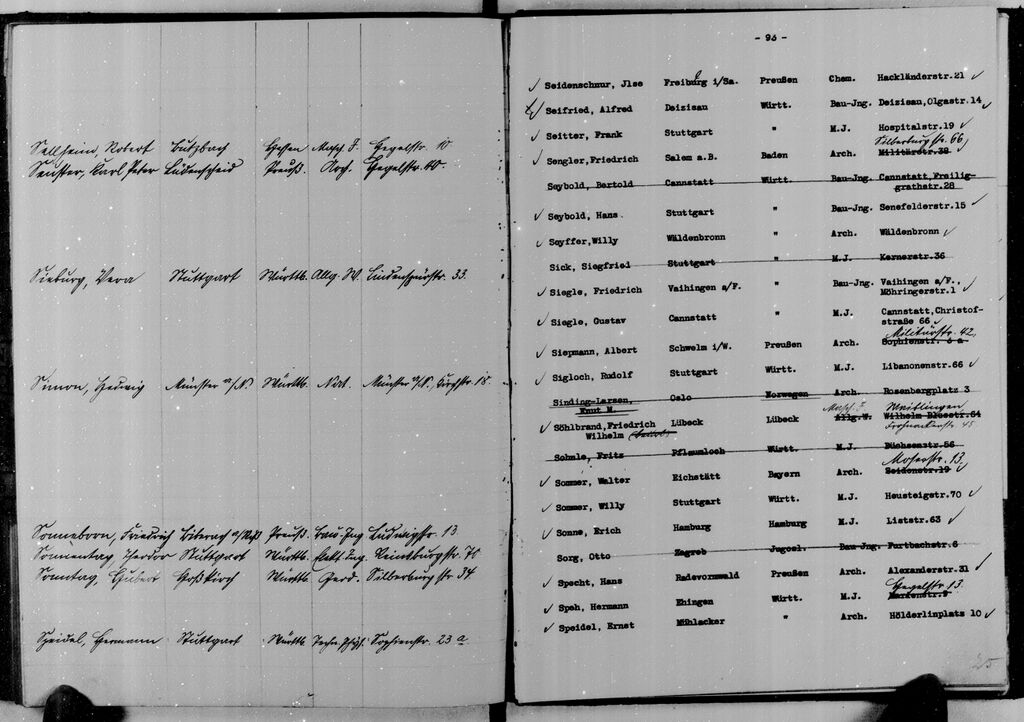 Sellheim, Robert Butzbach Hessen Masch. I. Hegelstr. 10
Senster, Karl Peter Lüdenscheid Preuß. Arch. Hegelstr. 40.
Sieburg, Vera Stuttgart Württb. Allg. W. Lindenspürstr. 33.
Simon, Hedwig Münster a/N. Württb. Nat. Münster a/N., Kirchstr. 18.
Sonneborn, Friedrich Biberach a/Riß Preuß. Bau-Ing. Ludwigstr. 13
Sonnentag, Theodor Stuttgart Württb. Elekt. Ing. Reinsburgstr. 70
Sonntag, Hubert Hoßkirch Württb. Gerd. Silberburgstr. 34.
Speidel, Hermann Stuttgart Württb. Sophienstr. 23 a.
- 93 -
√ Seidenschnur, Jlse Freiburg i/Sa. Preußen Chem. Hackländerstr.21 √
√ Seifried, Alfred Deizisau Württ. Bau-Jng. Deizisau,Olgastr.14 √
Seitter, Frank Stuttgart " M.J. Hospitalstr.19 √
Silberburgstr. 66
√ Sengler,Friedrich Salem a.B. Baden Arch. Militärstr.38
Seybold, Bertold Cannstatt Württ. Bau-Jng. Cannstatt,Freilig-
grathstr.28
√ Seybold, Hans. Stuttgart " Bau-Jng. Senefelderstr.15 √
√ Seyffer,Willy Wäldenbronn " Arch. Wäldenbronn √
Sick, Siegfried Stuttgart " M.J. Kernerstr.36
√ Siegle, Friedrich Vaihingen a/F. " Bau-Jng. Vaihingen a/F.,
Möhringerstr.1 √
√ Siegle, Gustav Cannstatt " M.J. Cannstatt,Christof-
straße 66 √
Militärstr. 42
√ Siepmann, Albert Schwelm i/W. Preußen Arch. Sophienstr. 6 a
√ Sigloch, Rudolf Stuttgart Württ. M.J. Libanonenstr.66 √
Sinding-Larsen, Oslo Norwegen Arch. Rosenbergplatz 3
Knut M. Masch. I.
√ Söhlbrand,Friedrich Lübeck Lübeck Allg.W. Wilhelm Blosstr.64
Wilhelm
Sohnle, Fritz Pflaumloch Württ. M.J. Büchsenstr.56
Moserstr. 13
√ Sommer, Walter Eichstätt Bayern Arch. Seidenstr.19 √
√ Sommer, Willy Stuttgart Württ. M.J. Heusteigstr.70 √
√ Sonne, Erich Hamburg Hamburg M.J. Liststr.63 √
Sorg, Otto Zagreb Jugosl. Bau-Jng. Furtbachstr.6
√ Specht, Hans Radevormwald Preußen Arch. Alexanderstr.31 √
Hegelstr. 13.
√ Speh, Hermann Ehingen Württ. M.J.
√ Speidel, Ernst Mühlacker " Arch. Hölderlinplatz 10 √